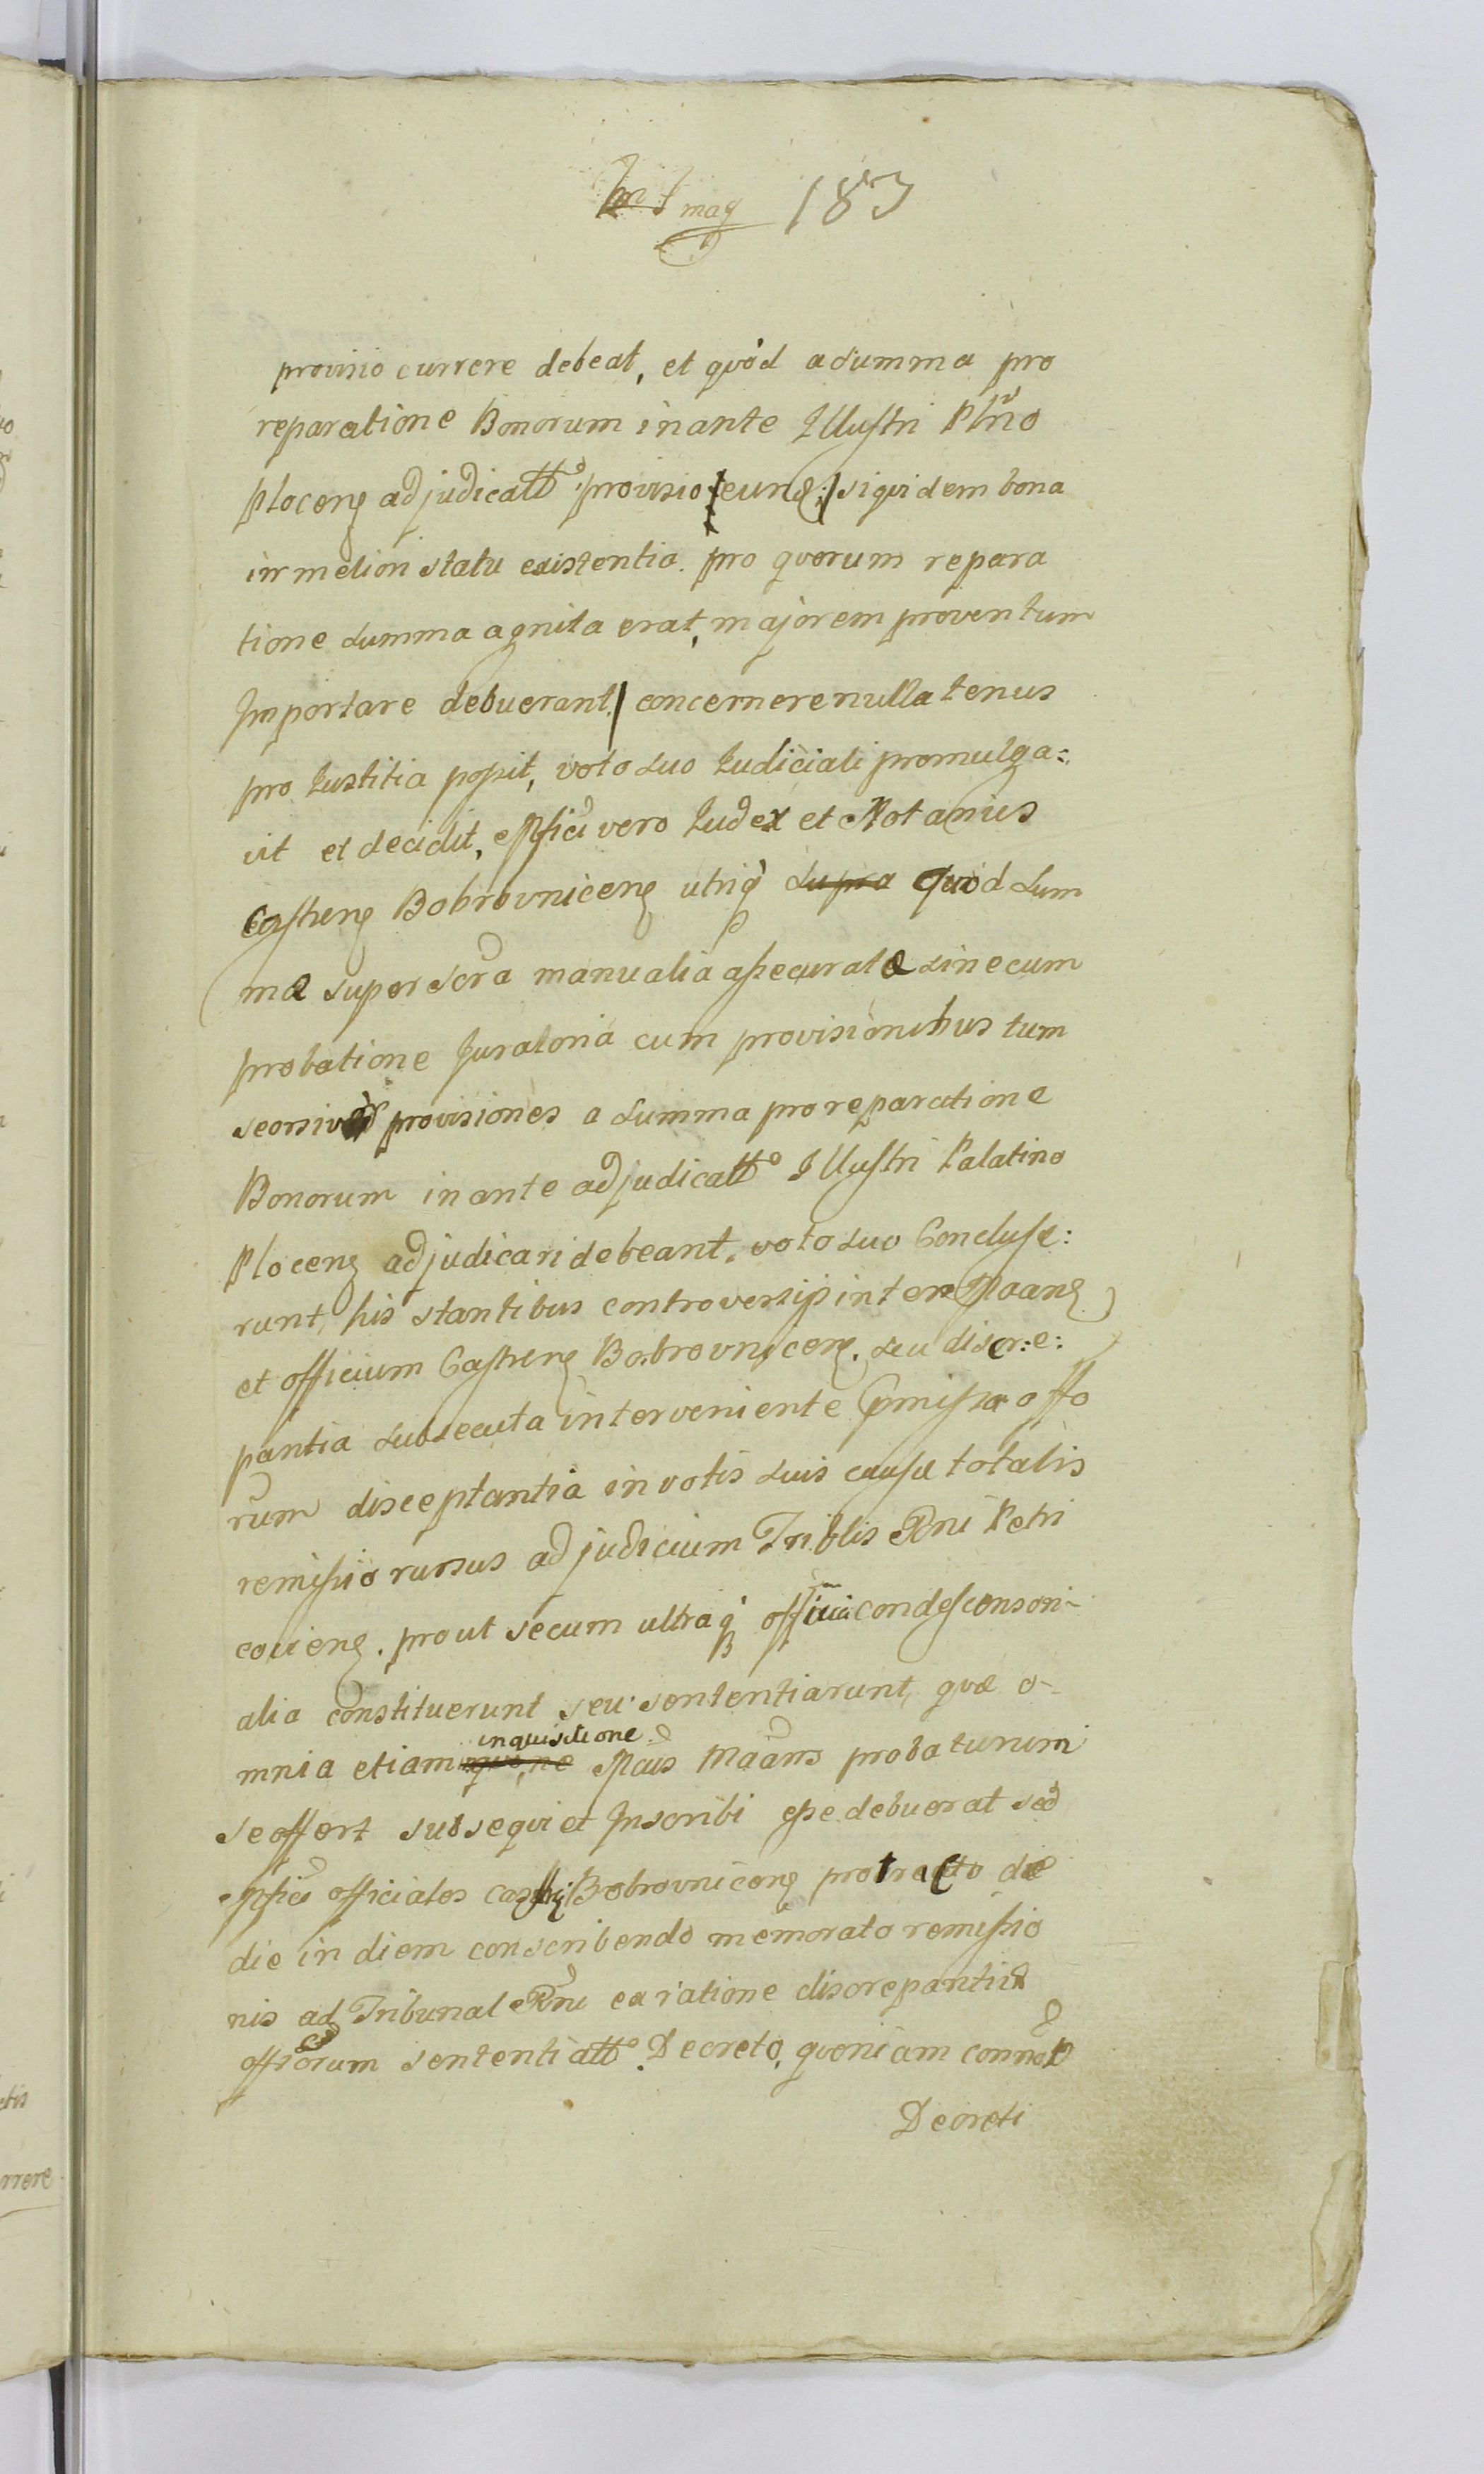 mag 183
provisio currere debeat, et quòd a summa pro
reparatione Bonorum inante Illustri Pltńo
Plocen̄ adjudicatt͠o provisio eund: siquidem bona
in meliori statu existentia. pro quorum repara
tione summa agnita erat, majorem proventum
Importare debuerant / concernere nullatenus
pro Iustitia possit, voto suo Iudiciali promulga:
vit et decidit, vero Iudex et Notarius
Castren̄ Bobrovnicen̄ utriq̀ ~~supra~~ quod Sum
mæ super scra manualia assecuratæ sine cum
probatione Iuratoria cum provisionibus tum
provisiones a summa pro reparatione
Bonorum inante adjudicatto Illustri Palatino
Plocen̄ adjudicari debeant, voto suo Concluse:
runt, his stantibus controversijs inter
et officium Castren̄ Bobrovnicen̄. seu discre:
pantia subsecuta interveniente offo
rum disceptantia in votis suis causæ totalis
remissio rursus ad judicium Triblis Rni Petri
covien̄. prout secum utraq̀
alia constituerunt seu sententiarunt, quæ o-
mnia etiam inquisitione probaturum
se offert subsequi et Inscribi esse debuerat sed
officiales Bobrovnicen̄ protracto de
die in diem conscribendo memorato remissio
nis ad Tribunal Rni ea ratione discrepantiæ
offiorum sententiatto. Decreto, quoniam
Decreti